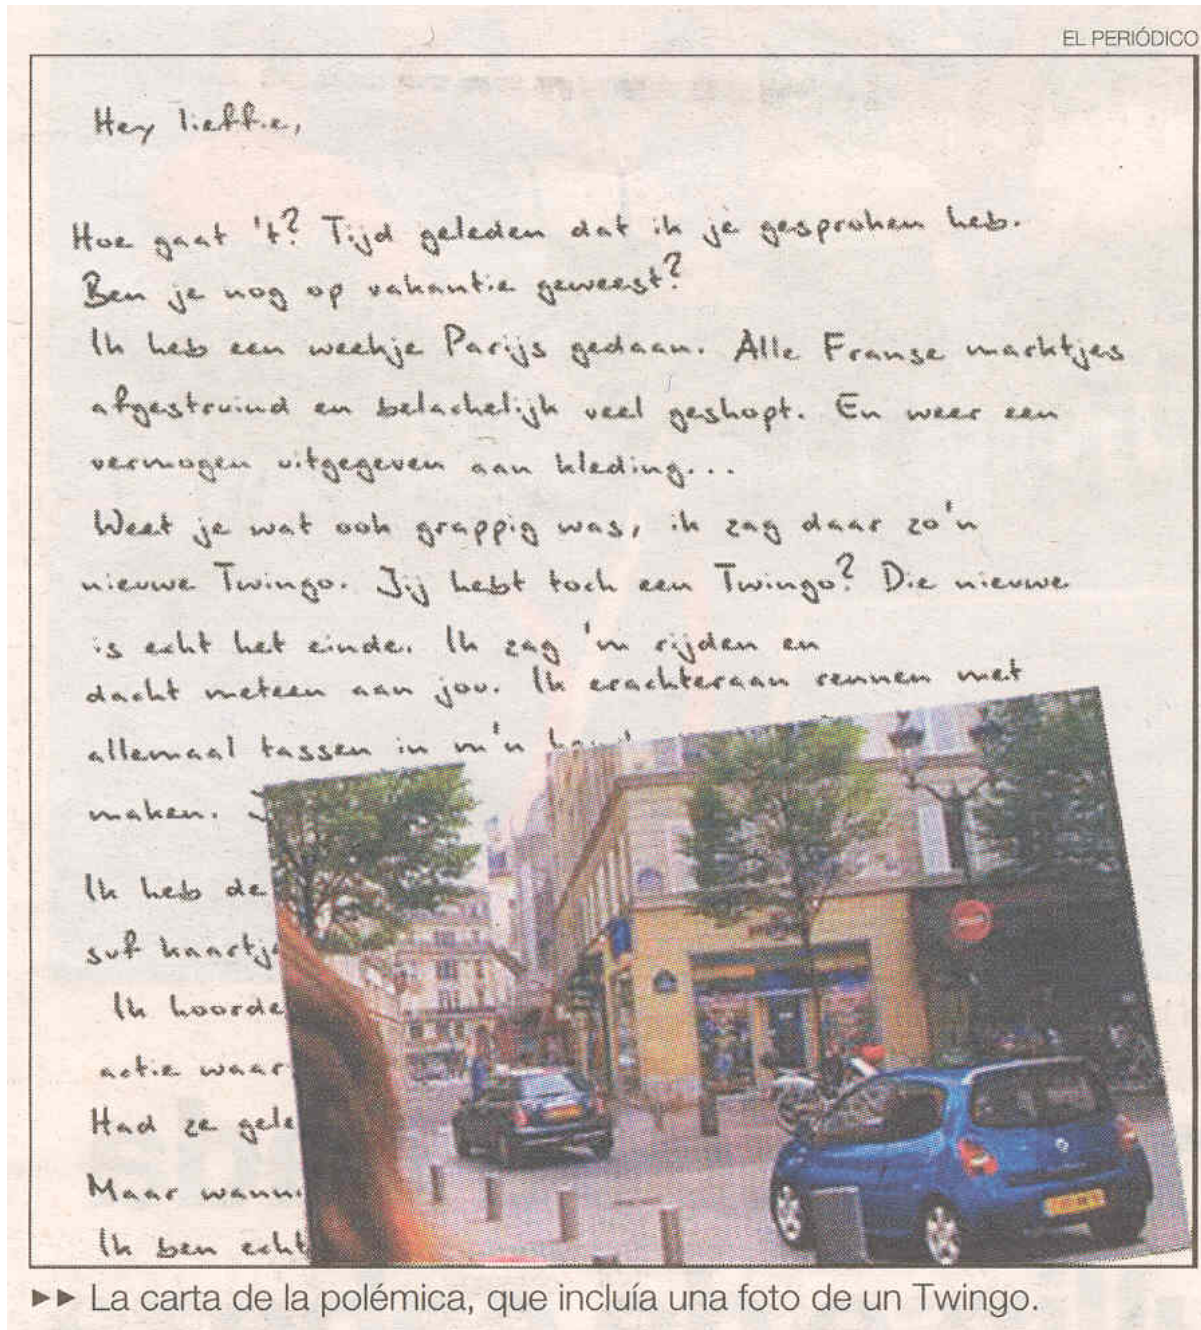 EL PERIÓDICO
Hey lieffie,
Hoe gaat 't? Tijd geleden dat ik je gesproken heb.
Ben je nog op vakantie geweest?
Ik heb een weekje Parijs gedaan. Alle Franse marktjes
afgestruind en belachelijk veel geshopt. En weer een
vermogen uitgegeven aan kleding...
Weet je wat ook grappig was, ik zag daar zo'n
nieuwe Twingo. Jij hebt toch een Twingo? Die nieuwe
is echt het einde. Ik zag 'm rijden en
dacht meteen aan jou. Ik erachteraan rennen met
allemaal tassen in m'n
maken.
Ik heb de
suf kaartje
Ik hoorde
actie waar
Had ze gele
Maar wanne
Ik ben echt
▶▶ La carta de la polémica, que incluía una foto de un Twingo.